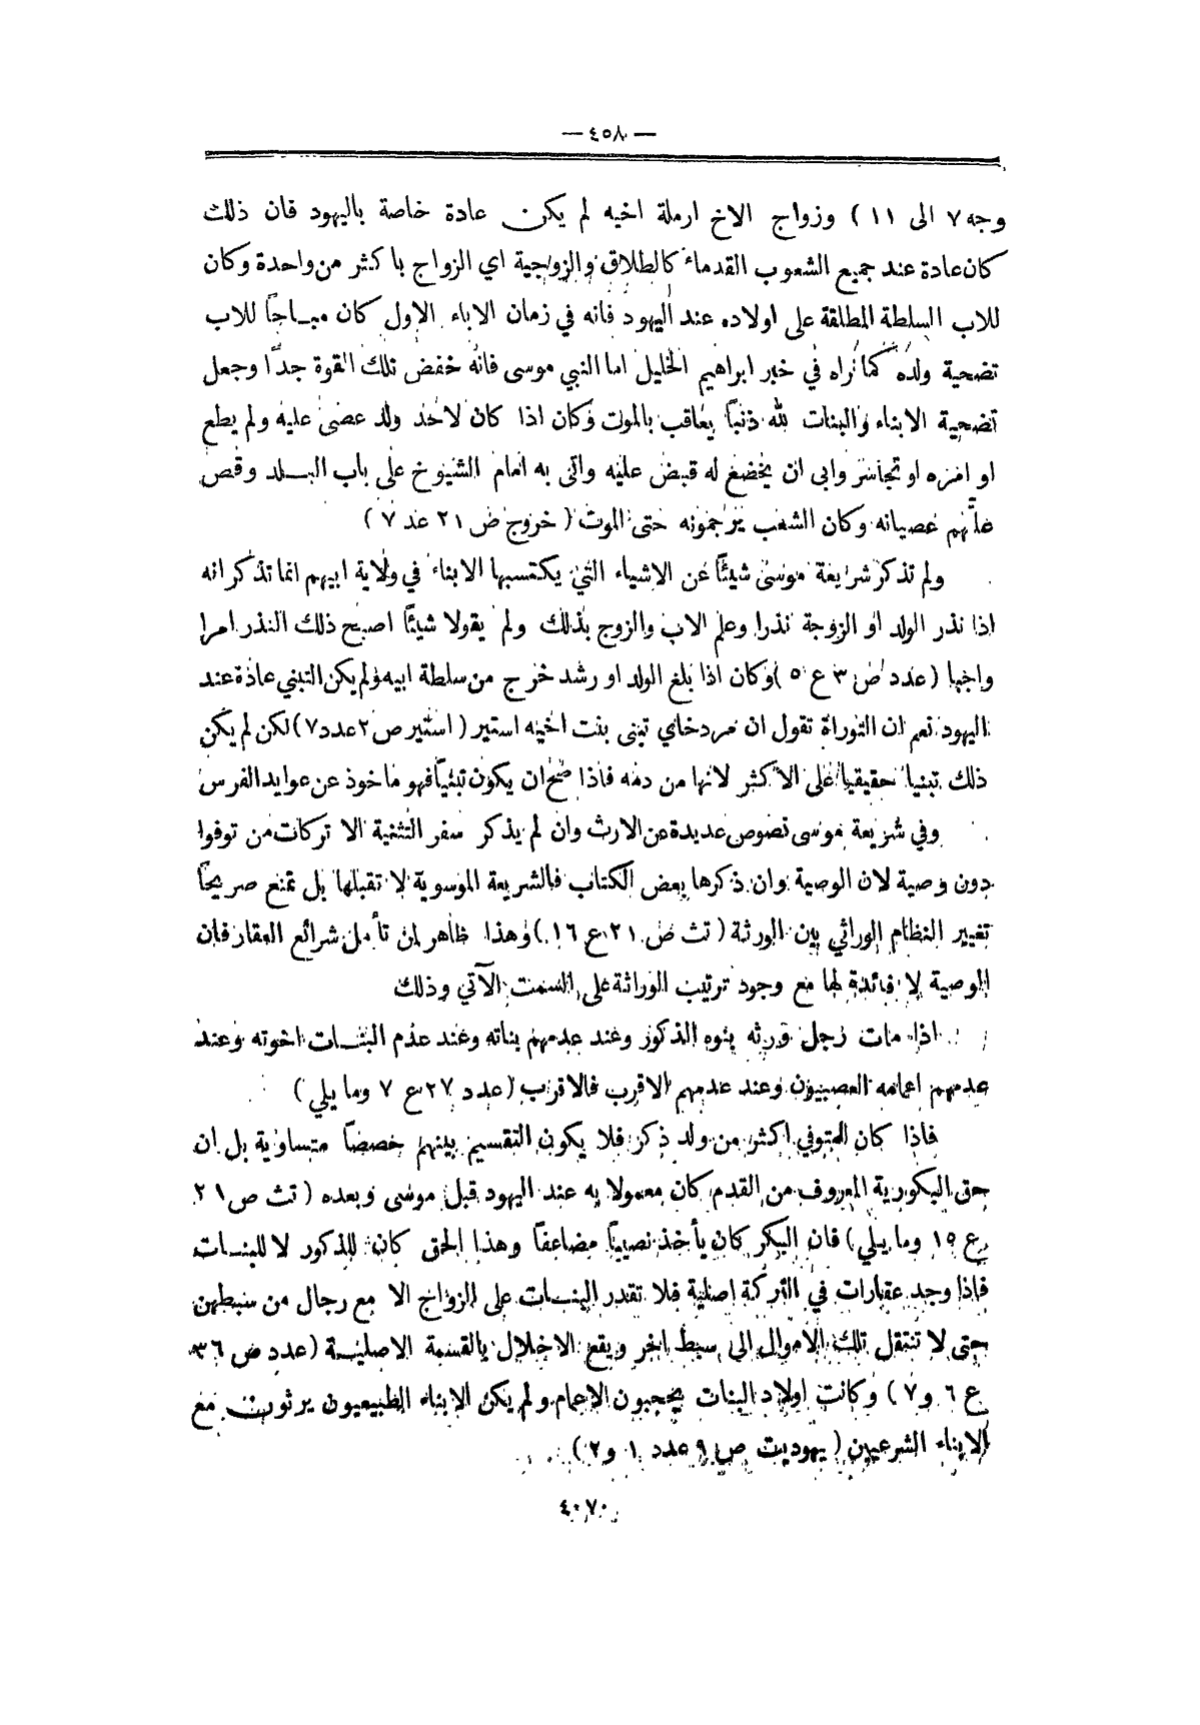 — ٤٥٨ —
وجه ٧ الى ١١ ) وزواج الاخ ارملة اخيه لم يكن عادة خاصة باليهود فان ذلك
كان عادة عند جميع الشعوب القدماء كالطلاق والزوجية اي الزواج باكثر من واحدة وكان
للاب السلطة المطلقة على اولاده عند اليهود فانه في زمان الاباء الاول كان مباحًا للاب
تضحية ولده كما نراه في خبر ابراهيم الخليل اما النبي موسى فانه خفض تلك القوة جدًّا وجعل
تضحية الابناء والبنات لله ذنبًا يعاقب بالموت وكان اذا كان لاحد ولد عصى عليه ولم يطع
اوامره او تجاسر وابى ان يخضع له قبض عليه واتى به امام الشيوخ على باب البلد وقص
عليهم عصيانه وكان الشعب يرجمونه حتى الموت ( خروج ص ٢١ عد ٧ )
ولم تذكر شريعة موسى شيئًا عن الاشياء التي يكتسبها الابناء في ولاية ابيهم انما تذكر انه
اذا نذر الولد او الزوجة نذرا وعلم الاب والزوج بذلك ولم يقولا شيئًا اصبح ذلك النذر امرا
واجبا ( عدد ص ٣ ع ٥ ) وكان اذا بلغ الولد او رشد خرج من سلطة ابيه ولم يكن التبني عادة عند
اليهود نعم ان التوراة تقول ان مردخاي تبنى بنت اخيه استير ( استير ص ٢ عدد ٧ ) لكن لم يكن
ذلك تبنيا حقيقيا على الاكثر لانها من دمه فاذا صح ان يكون تبنيًا فهو ماخوذ عن عوايد الفرس
وفي شريعة موسى نصوص عديدة عن الارث وان لم يذكر سفر التثنية الا تركات من توفوا
دون وصية لان الوصية وان ذكرها بعض الكتاب فالشريعة الموسوية لا تقبلها بل تمنع صريحًا
تغيير النظام الوراثي بين الورثة ( تث ص ٢١ ع ١٦ ) وهذا ظاهر لمن تأمل شرائع العقار فان
الوصية لا فائدة لها مع وجود ترتيب الوراثة على السمت الآتي وذلك
اذا مات رجل ورثه بنوه الذكور وعند عدمهم بناته وعند عدم البنات اخوته وعند
عدمهم اعمامه العصبيون وعند عدمهم الاقرب فالاقرب ( عدد ٢٧ ع ٧ وما يلي )
فاذا كان المتوفي اكثر من ولد ذكر فلا يكون التقسيم بينهم حصصًا متساوية بل ان
حق البكورية المعروف من القدم كان معمولا به عند اليهود قبل موسى وبعده ( تث ص ٢١
ع ١٥ وما يلي ) فان البكر كان يأخذ نصيبًا مضاعفًا وهذا الحق كان للذكور لا للبنات
فاذا وجد عقارات في التركة اصلية فلا تقدر البنات على الزواج الا مع رجال من سبطهن
حتى لا تنتقل تلك الاموال الى سبط اخر ويقع الاخلال بالقسمة الاصلية ( عدد ص ٣٦
ع ٦ و ٧ ) وكانت اولاد البنات يحجبون الاعمام ولم يكن الابناء الطبيعيون يرثون مع
الابناء الشرعيين ( يهوديت ص ٩ عدد ١ و ٢ )
٤٠٧٠